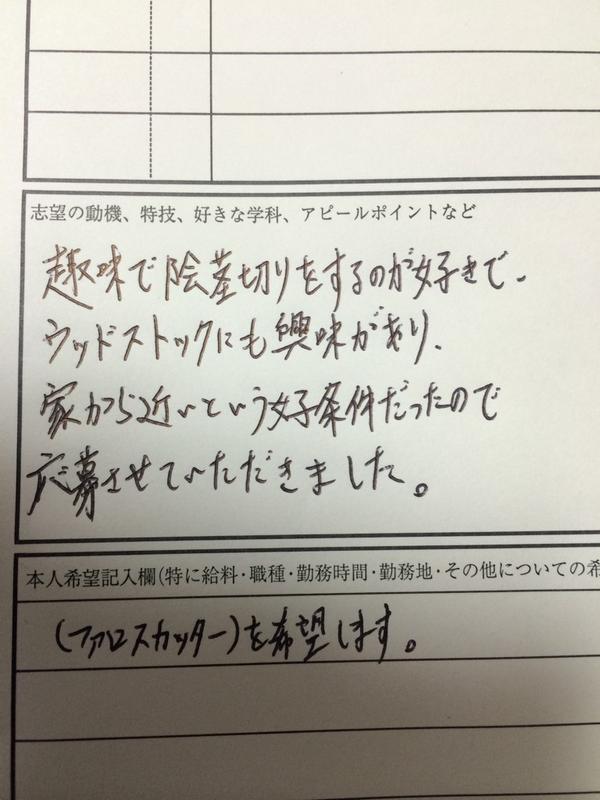 志望の動機、特技、好きな学科、アピールポイントなど
趣味で陰茎切りをするのが好きで、
ウッドストックにも興味があり、
家から近いという好条件だったので
応募させていただきました。
本人希望記入欄(特に給料・職種・勤務時間・勤務地・その他についての希
(ファロスカッター)を希望します。